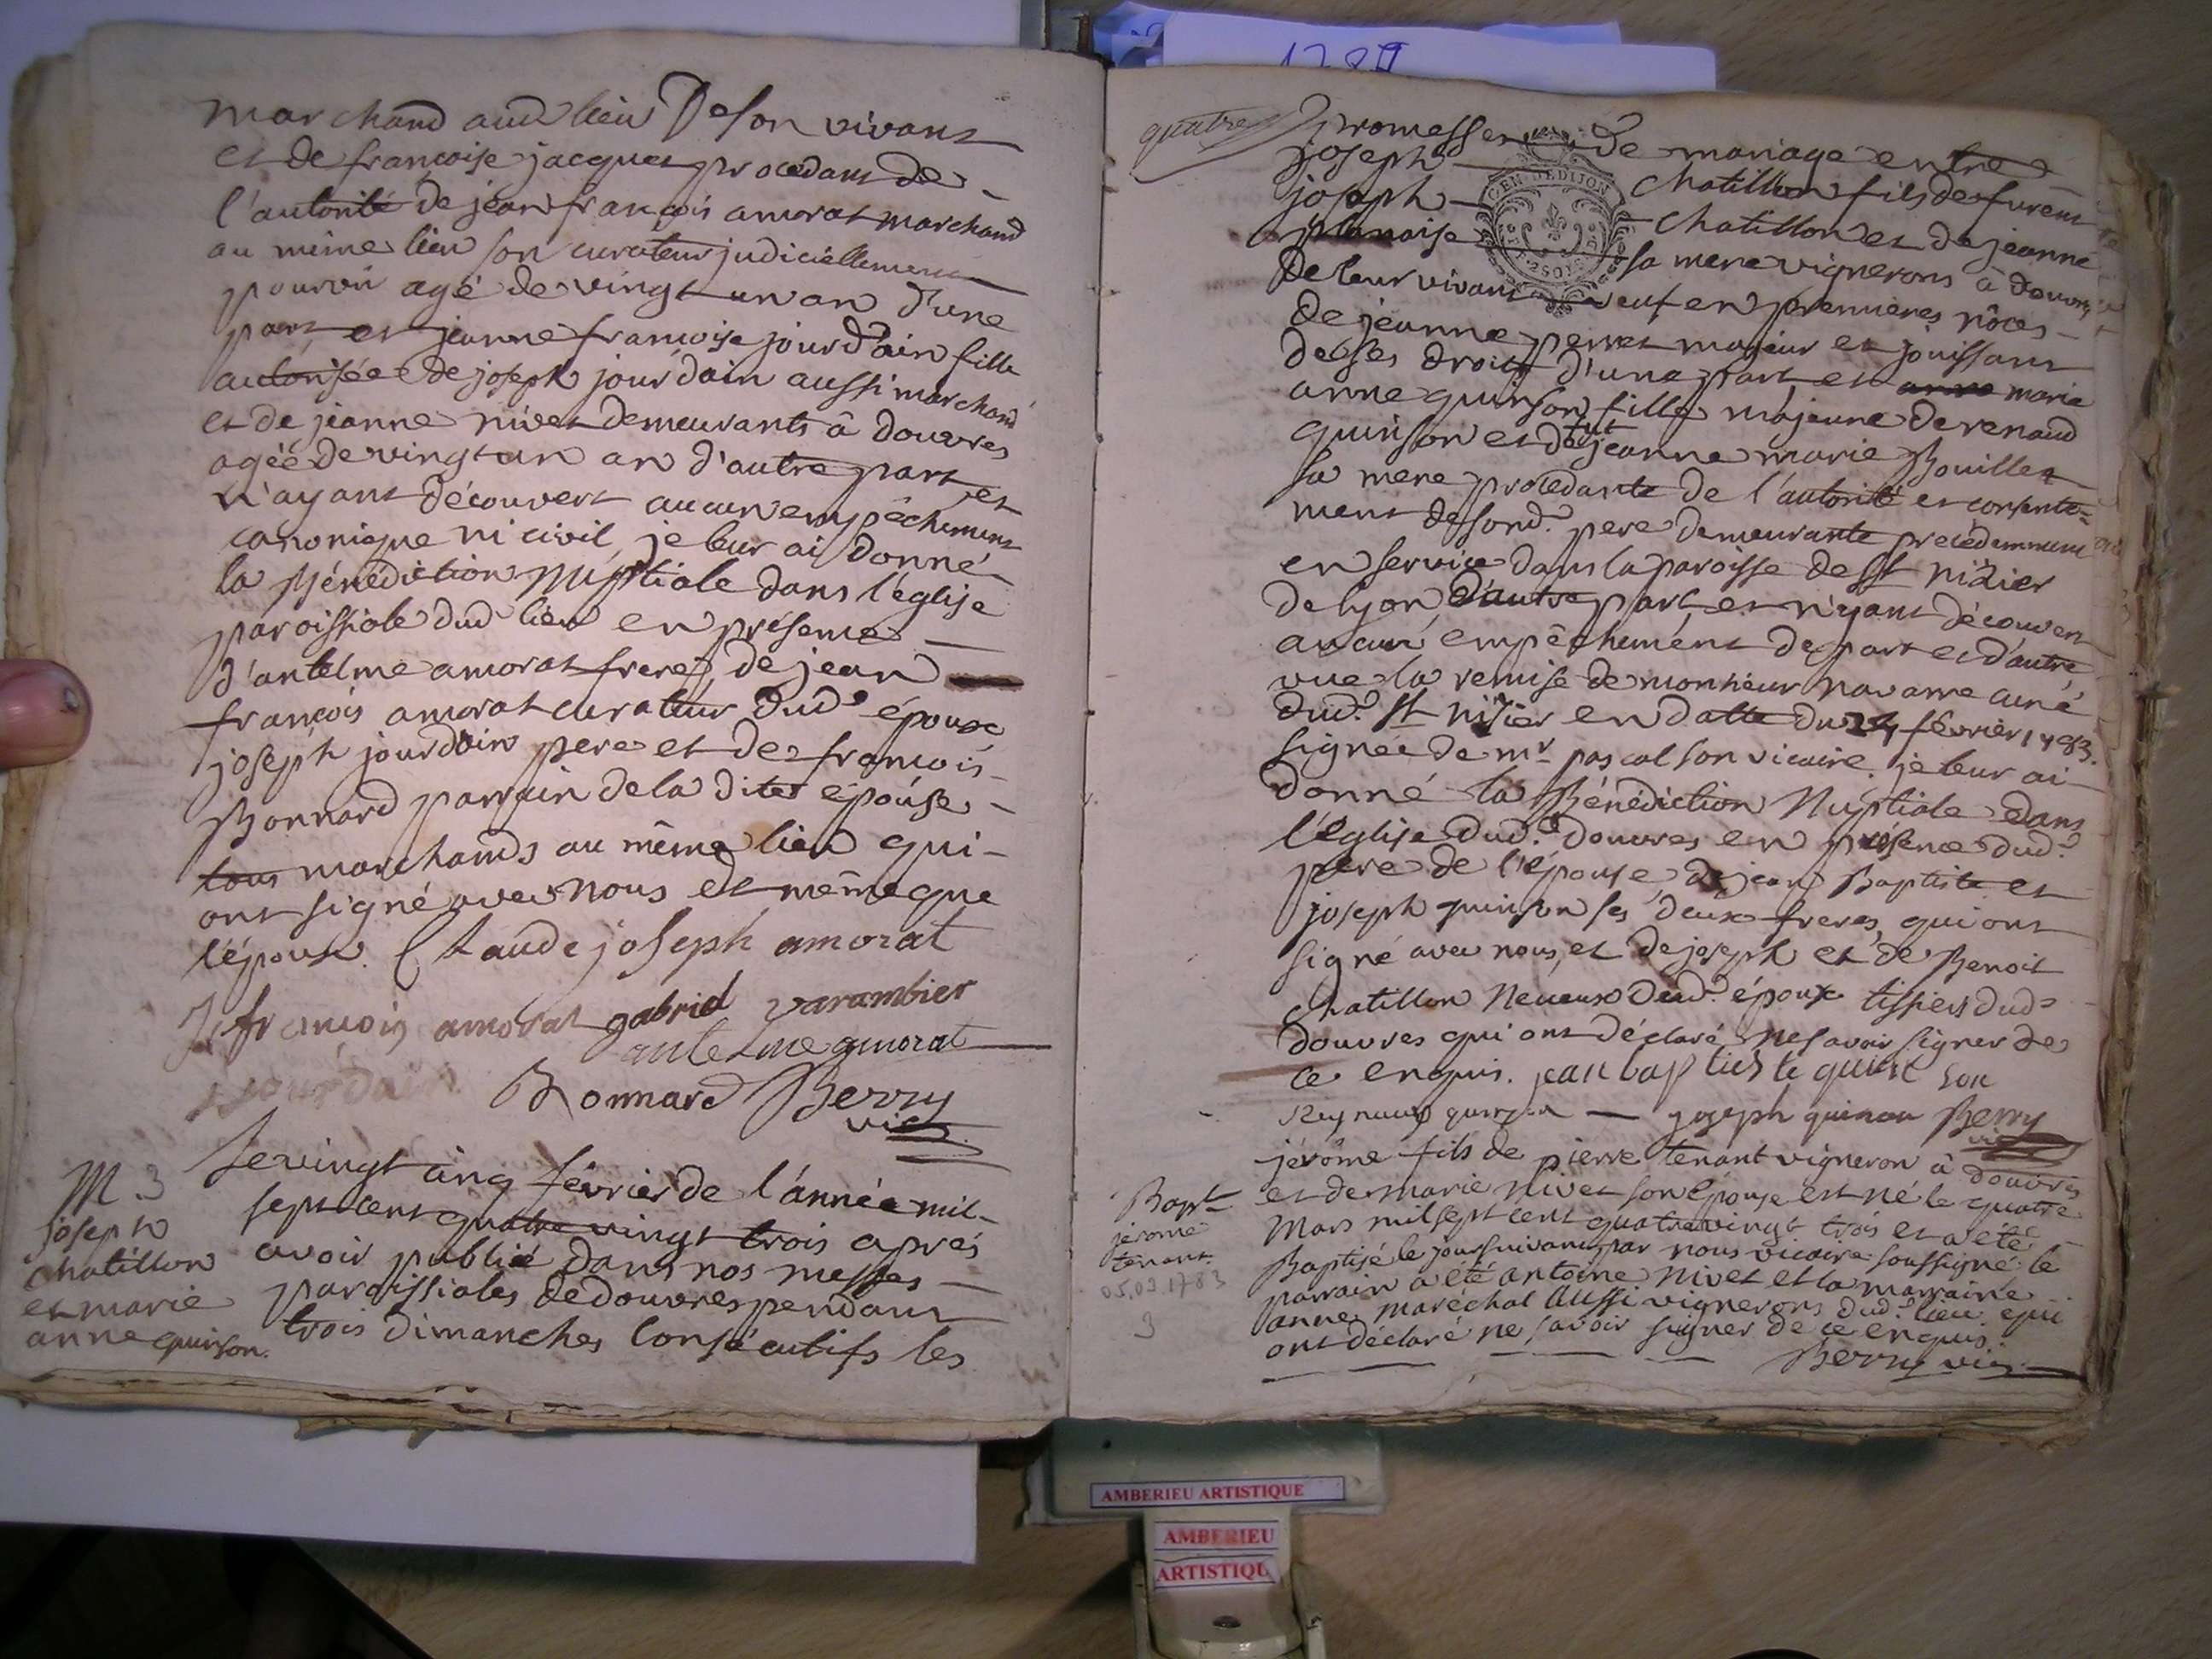 marchand aud lieu De son vivant
et de françoise jacquet procedant de
l'autorité de jean françois amorat marchand
au même lieu son curateur judiciellement
pourvu agé de vingt un an d'une
part et jeanne françoise jourdain fille
autorisée de joseph jourdain aussi marchand
et de jeanne nivet demeurants à douvres
agée de vingt un an d'autre part et
n'ayant découvert aucun empêchement
canonique ni civil, je leur ai donné
la Bénédiction Nuptiale dans l'église
paroissiale dud lieu en présence
d'antelme amorat frere, de jean
françois amorat curateur dud? époux
joseph jourdain pere et de françois
Bonnard parrain de la dite épouse
tous marchands au même lieu qui
ont signé avec nous et même que
l'époux. Claude joseph amorat
J. françois amorat gabriel varambier
antelme amorat
jourdain Bonnard Berry
vic.
M. 3
joseph
chatillon
et marie
anne quinson.
Le vingt cinq février de l'année mil
sept cent quatre vingt trois après
avoir publié dans nos messes
paroissiales de douvres pendant
trois dimanches consécutifs les
1787
quatre
promesses de mariage entre
joseph chatillon fils de furent
joseph chatillon et de jeanne
planaise sa mere vignerons à douvres
GEN. DE DIJON
De leur vivant veuf en premieres nôces
de jeanne perret majeur et jouissant
de ses droits d'une part, et marie
anne quinson fille majeure de renaud
quinson et de fut jeanne marie Bouillet
sa mere procedante de l'autorité et consente=
ment de sond? pere demeurante précédemment
en service dans la paroisse de St nizier
de lyon, d'autre part, et n'yant découvert
aucun empêchement de part et d'autre
vue la remise de monsieur navarre curé
dud? St nizier en datte du 24 février 1783.
signée de mr pascal son vicaire. je leur ai
donné la Bénédiction Nuptiale dans
l'église dud? douvres en présence dud?
pere de l'épouse, de jean Baptiste et
joseph quinson ses deux freres, qui ont
signé avec nous, et de joseph et de Benoit
chatillon neveux dud? époux tissiers dud?
douvres qui ont déclaré ne savoir signer de
ce enquis. jean baptiste quinson
Reynaud quinson — joseph quinson Berry
vic
Bapt
jerome
tenant.
05.03.1783
3
jérôme fils de pierre tenant vigneron à douvres
et de marie nivet son épouse est né le quatre
Mars mil sept cent quatre vingt trois et a été
Baptisé le jour suivant par nous vicaire soussigné. le
parrain a été antoine nivet et la marraine
anne maréchal aussi vignerons dud? lieu qui
ont déclaré ne savoir signer de ce enquis.
Berry vic.
AMBERIEU ARTISTIQUE
AMBERIEU
ARTISTIQU